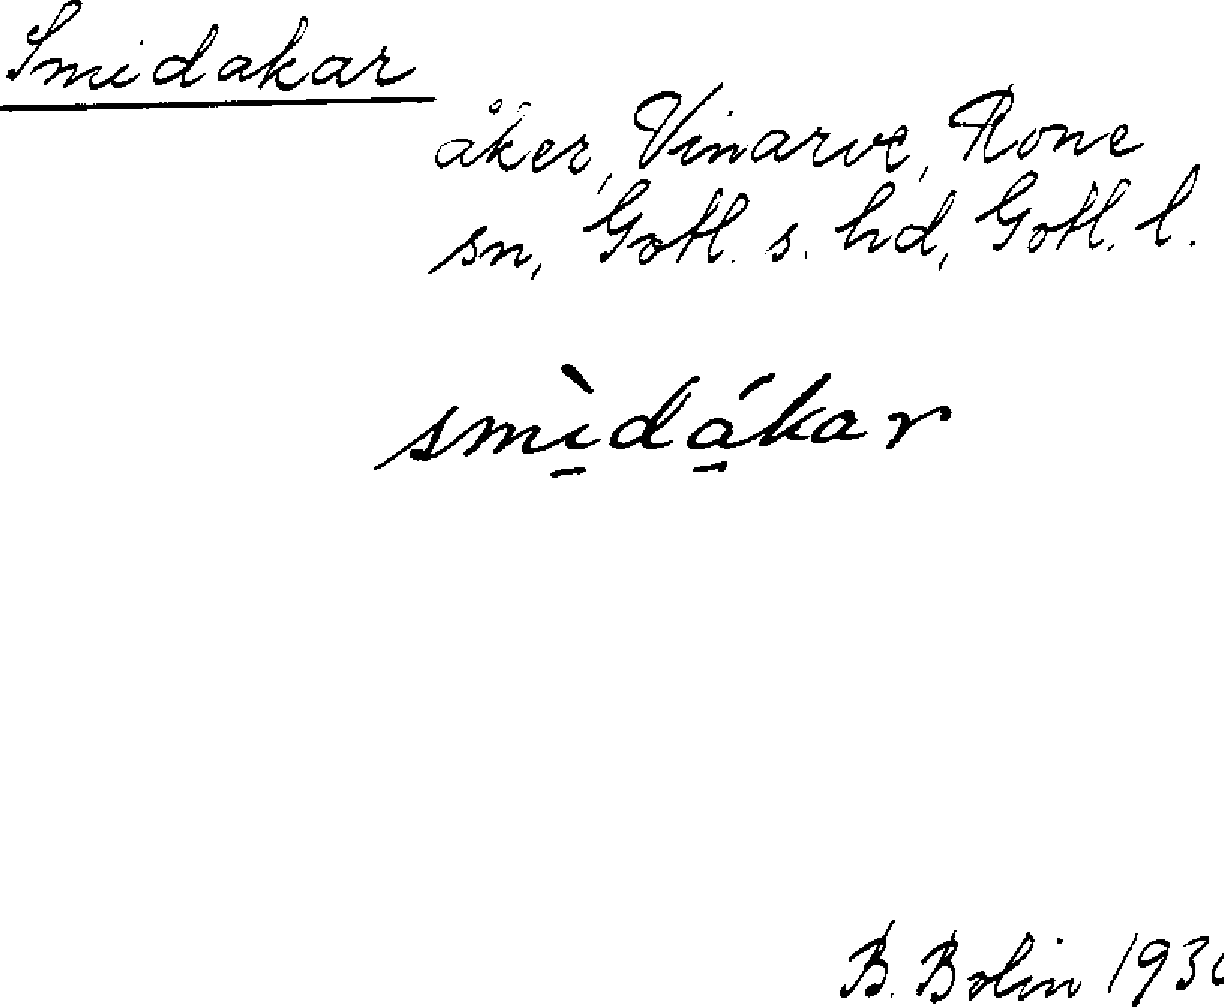 Smidakar
åker, Vinarve, Rone
sn, Gotl. s. hd, Gotl. l.
smì̱dá̱kar
B. Bolin